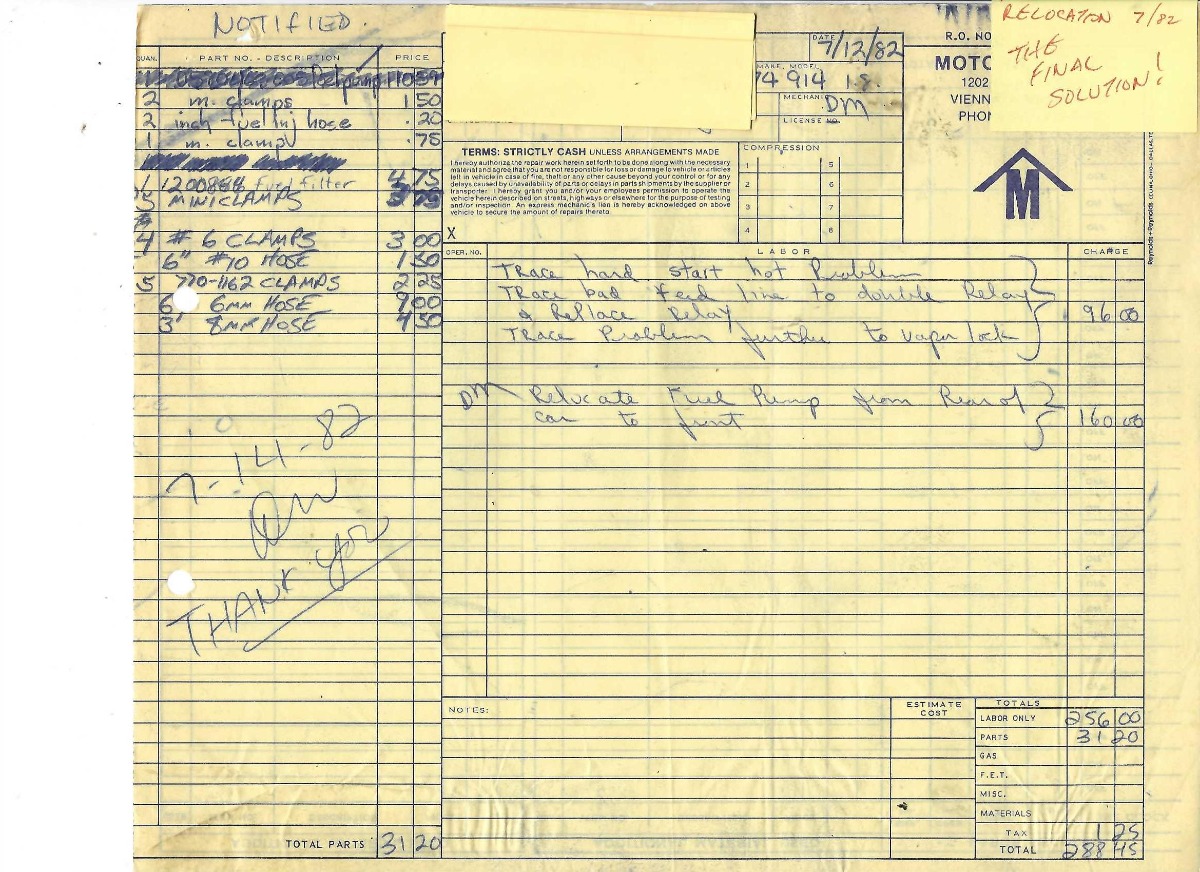 NOTIFIED.
RELOCATION 7/82
THE
FINAL
SOLUTION!
DATE
7/12/82
R.O. NO
MAKE, MODEL
74 914 1.8
MECHANI
DM
LICENSE NO.
MOTO
1202
VIENN
PHON
QUAN. PART NO. - DESCRIPTION PRICE
2 m. clamps 1 50
2 inch fuel inj hose . 20
1 m. clamp . 75
1 fuel filter 4 75
5 MINICLAMPS 3 75
4 # 6 CLAMPS 3 00
6" #10 HOSE 1 50
5 770-1162 CLAMPS 2 25
6' 6mm HOSE 9 00
3' 8mm HOSE 4 50
7-14-82
THANK YOU
TOTAL PARTS 31 20
TERMS: STRICTLY CASH UNLESS ARRANGEMENTS MADE
I hereby authorize the repair work herein set forth to be done along with the necessary
material and agree that you are not responsible for loss or damage to vehicle or articles
left in vehicle in case of fire, theft or any other cause beyond your control or for any
delays caused by unavailability of parts or delays in parts shipments by the supplier or
transporter. I hereby grant you and/or your employees permission to operate the
vehicle herein described on streets, highways or elsewhere for the purpose of testing
and/or inspection. An express mechanic's lien is hereby acknowledged on above
vehicle to secure the amount of repairs thereto.
X
COMPRESSION
1 5
2 6
3 7
4 8
M
OPER. NO. LABOR CHARGE
Trace hard start hot Problem
Trace bad feed line to double Relay
& Replace Relay 96 00
Trace Problem further to vapor lock
DM Relocate Fuel Pump from Rear of
car to front 160 00
NOTES:
ESTIMATE
COST
TOTALS
LABOR ONLY 256 00
PARTS 31 20
GAS
F.E.T.
MISC.
MATERIALS
TAX 1 25
TOTAL 288 45